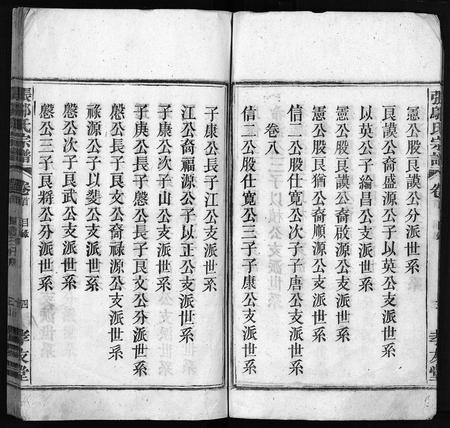 氏宗譜
卷
孝友堂
憲公股艮謨公分派世系
艮謨公裔盛源公子以英公支派世系
以英公子綸昌公支派世系
憲公股艮謨公裔啟源公支派世系
憲公股艮猶公裔順源公支派世系
信二公股仕寛公次子子唐公支派世系
卷八
信二公股仕寛公三子子康公支派世系
子康公長子江公支派世系
江公裔福源公子以正公支派世系
子康公次子山公支派世系
子庚公長子慇公長子艮文公分派世系
慇公長子艮文公裔祿源公支派世系
祿源公子以燮公支派世系
慇公次子艮武公支派世系
慇公三子艮將公分派世系
張 氏宗譜
卷首
目錄
四
孝友堂